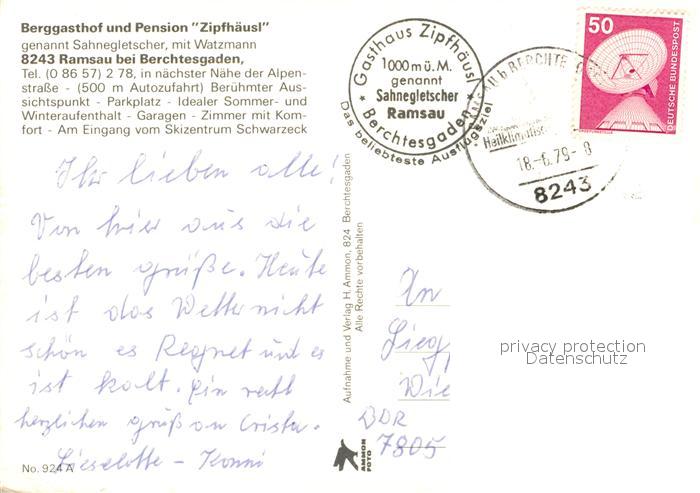 Berggasthof und Pension "Zipfhäusl"
genannt Sahnegletscher, mit Watzmann
8243 Ramsau bei Berchtesgaden,
Tel. (0 86 57) 2 78, in nächster Nähe der Alpen-
straße - (500 m Autozufahrt) Berühmter Aus-
sichtspunkt - Parkplatz - Idealer Sommer- und
Winteraufenthalt - Garagen - Zimmer mit Kom-
fort - Am Eingang vom Skizentrum Schwarzeck
Ihr lieben alle!
Von hier aus die
besten grüße. Heute
ist das Wetter nicht
schön es Regnet und es
ist kalt. Ein recht
herzlichen gruß an Crista.
Lieselotte - Konni
No. 924 A
Aufnahme und Verlag H. Ammon, 824 Berchtesgaden
Alle Rechte vorbehalten
AMMON
FOTO
Gasthaus Zipfhäusl
1000 m ü. M.
genannt
Sahnegletscher
Ramsau
Berchtesgaden
Das beliebteste Ausflugsziel
b. BERCHTE
18.-6.79-8
8243
50
DEUTSCHE BUNDESPOST
An
Sieg
Wie
DDR
7805
privacy protection
Datenschutz